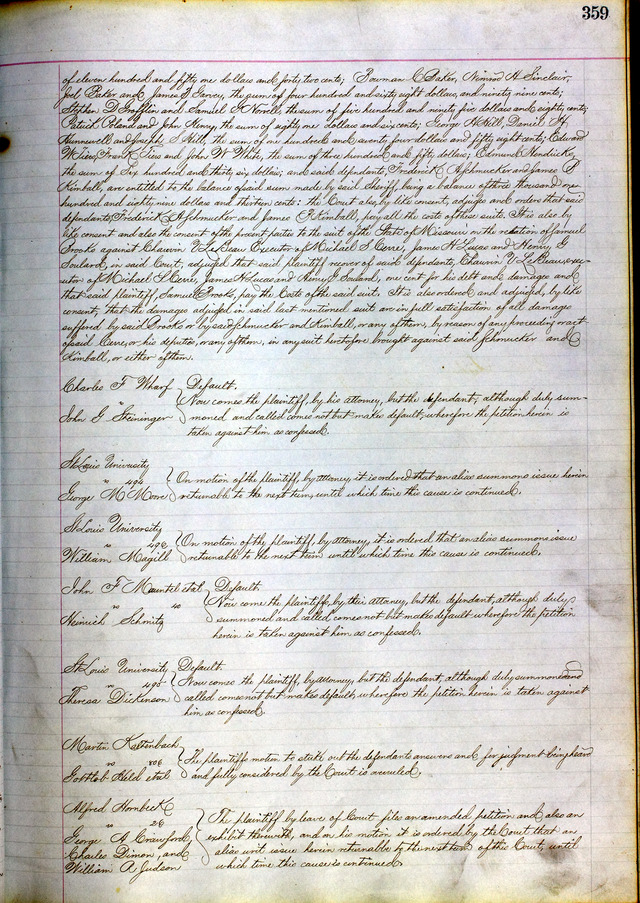 359
of eleven hundred and fifty one dollars and forty two cents; Bowman C Baker, Nimrod H Sinclair,
Joel Baker and James D Garvey, the sum of four hundred and sixty eight dollars, and ninety nine cents;
Stephen D and Samuel S Norell, the sum of five hundred and ninety five dollars and eighty cents,
Patrick Poland and John Heney, the sum of eighty one dollars and six cents; George H Hill, Daniel H
Hunnewell and Joseph S Hill, the sum of one hundred and seventy four dollars and fifty eight cents; Edward
W Tiers, Frank Tiers and John W White, the sum of three hundred and fifty dollars; Edmund Hendricks,
the sum of Six hundred and thirty six dollars; and said defendants, Frederick A Schmucker and James P
Kimball, are entitled to the balance of said sum made by said Sheriff, being a balance of three thousand one
hundred and eighty nine dollars and thirteen cents: the Court also, by like consent, adjudges and orders that said
defendants, Frederick A Schmucker and James P Kimball, pay all the costs of these suits. It is also by
like consent and also the consent of the present parties to the suit of the State of Missouri on the relation of Samuel
Brooks against Chauvin V LeBeau Executor of Michael S Cerre, James H Lucas and Henry G
Soulard, in said Court, adjudged that said plaintiff recover of said defendants, Chauvin V LeBeau, exec-
utor of Michael S Cerre, James H Lucas and Henry G Soulard, one cent for his debt and damages and
that said plaintiff, Samuel Brooks, pay the Costs of the said suit. It is also ordered and adjudged, by like
consent, that the damages adjudged in said last mentioned suit are in full satisfaction of all damages
suffered by said Brooks or by said Schmucker and Kimball, or any of them, by reason of any proceeding or act
of said Cerre, or his deputies, or any of them, in any suit heretofore brought against said Schmucker and
Kimball, or either of them.
Charles F Wharf Default.
Now comes the plaintiff, by his attorney, but the defendant, although duly sum-
John G Steininger moned and called comes not but makes default; wherefore the petition herein is
taken against him as confessed.
St Louis University
" 494 On motion of the plaintiff, by attorney it is ordered that an alias summons issue herein
George M Moore returnable to the next term, until which time this cause is continued.
St Louis University
" 496 On motion of the plaintiff, by attorney, it is ordered that an alias summons issue
William Magill returnable to the next term until which time this cause is continued.
John F Mauntel et al Default.
" 10 Now come the plaintiffs, by their attorney, but the defendant, although duly
Heinrich Schmitz summoned and called comes not but makes default wherefore the petition
herein is taken against him as confessed.
St Louis University Default.
" 495 Now comes the plaintiff, by attorney, but the defendant, although duly summoned and
Theresa Dickinson called comes not but makes default, wherefore the petition herein is taken against
him as confessed.
Martin Kaltenbach
The plaintiffs motion to strike out the defendants answers and for judgment being heard
Gottlob Held et al and fully considered by the Court is overruled.
Alfred Hornbeck
" 26 The plaintiff by leave of Court files an amended petition and also an
George A Crawford, exhibit therewith, and on his motion it is ordered by the Court that an
Charles Dimon, and alias writ issue herein returnable to the next term of this Court, until
William A Judson which time this cause is continued.